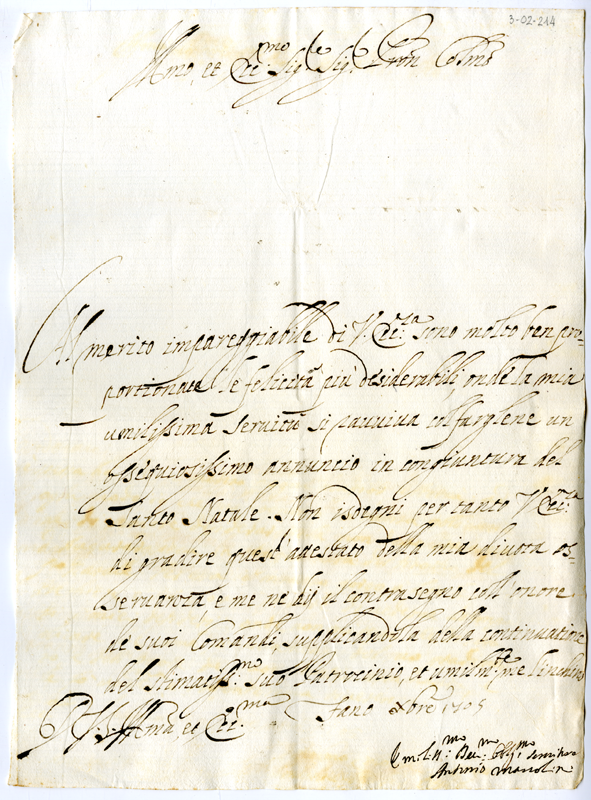 3-02-214
Illmo, et Ecc:mo Sig:re Sig:re Pron Colmo
Al merito impareggiabile di V. Ecc:za sono molto ben pro-
portionate le felicità più desiderabili, onde la mia
umilissima servitù si ravviva col fargliene un
ossequiosissimo annuncio in congiuntura del
Santo Natale. Non isdegni per tanto V. Ecc:za
di gradire quest'attestato della mia divota os-
servanza, e me ne dij il contrasegno coll'onore
de suoi Comandi, supplicandola della continuatione
del stimatiss:mo suo Patrocinio, et umilm:te me l'inchino
D. V. Illma, et Ecc:ma Fano Xbre 1705
Umiliss:mo Dev:mo Obl:mo Servitore
Antonio